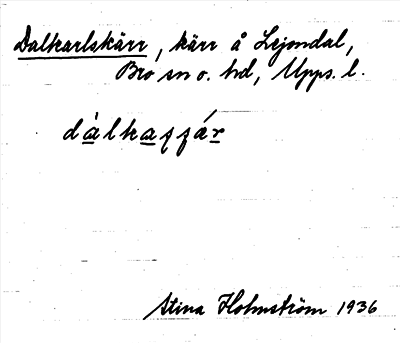 Dalkarlskärr, kärr å Lejondal,
Bro sn o. hd, Upps. l.
dàlkaʂʂár
Stina Holmström 1936